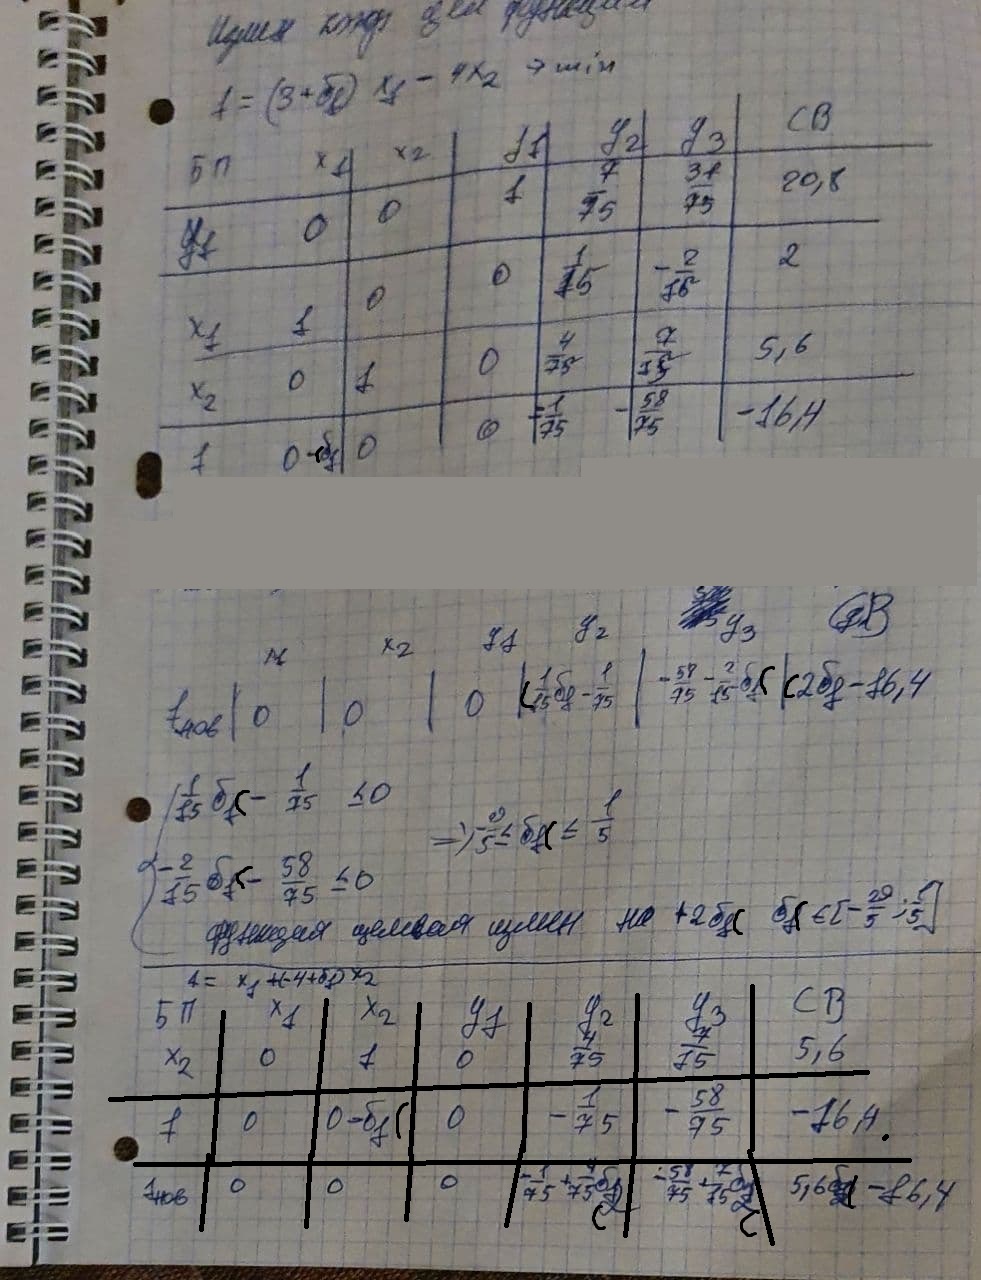 Измен коэф цел функции
f = (3+бf) x1 - 4x2 → min
БП x1 x2 y1 y2 y3 СВ
y1 0 0 1 -7/75 31/75 20,8
x1 1 0 0 1/15 -2/15 2
x2 0 1 0 4/75 7/75 5,6
f 0-бf 0 0 -1/75 -58/75 -16,4
x1 x2 y1 y2 y3 СВ
fнов 0 0 0 1/15 бf - 1/75 -58/75 - 2/15 бf 2бf - 16,4
1/15 бf - 1/75 ≤ 0
-2/15 бf - 58/75 ≤ 0
=> -29/5 ≤ бf ≤ 1/5
функция целевая измен на +2бf бf ∈ [-29/5 ; 1/5]
f = x1 + (-4+бf) x2
БП x1 x2 y1 y2 y3 СВ
x2 0 1 0 4/75 7/75 5,6
f 0 0-бf 0 -1/75 -58/75 -16,4
fнов 0 0 0 -1/75 + 4/75 бf -58/75 + 7/75 бf 5,6бf - 16,4